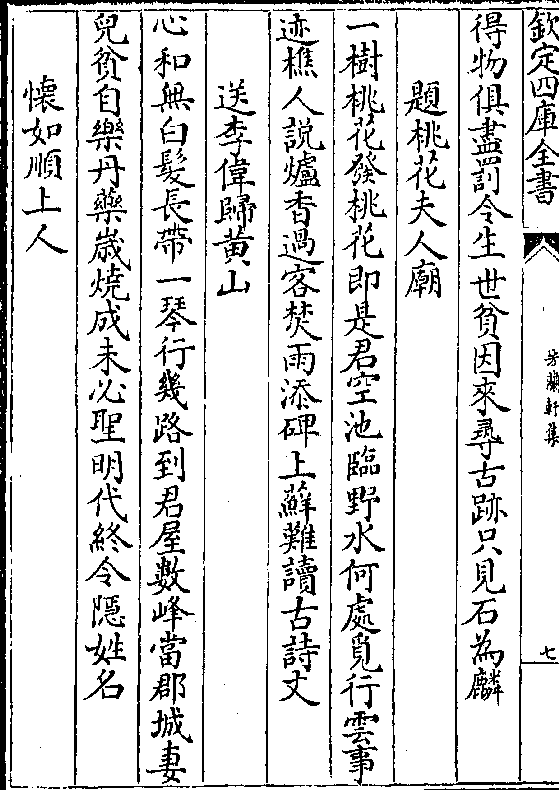 欽定四庫全書
芳蘭軒集
七
得物俱盡罰令生世貧因來尋古跡只見石為麟
題桃花夫人廟
一樹桃花發桃花即是君空池臨野水何處覓行雲事
迹樵人説爐香過客焚雨添碑上蘚難讀古詩文
送李偉歸黄山
心和無白髪長帶一琴行幾路到君屋數峰當郡城妻
兒貧自樂丹藥歳燒成未必聖明代終令隱姓名
懐如順上人